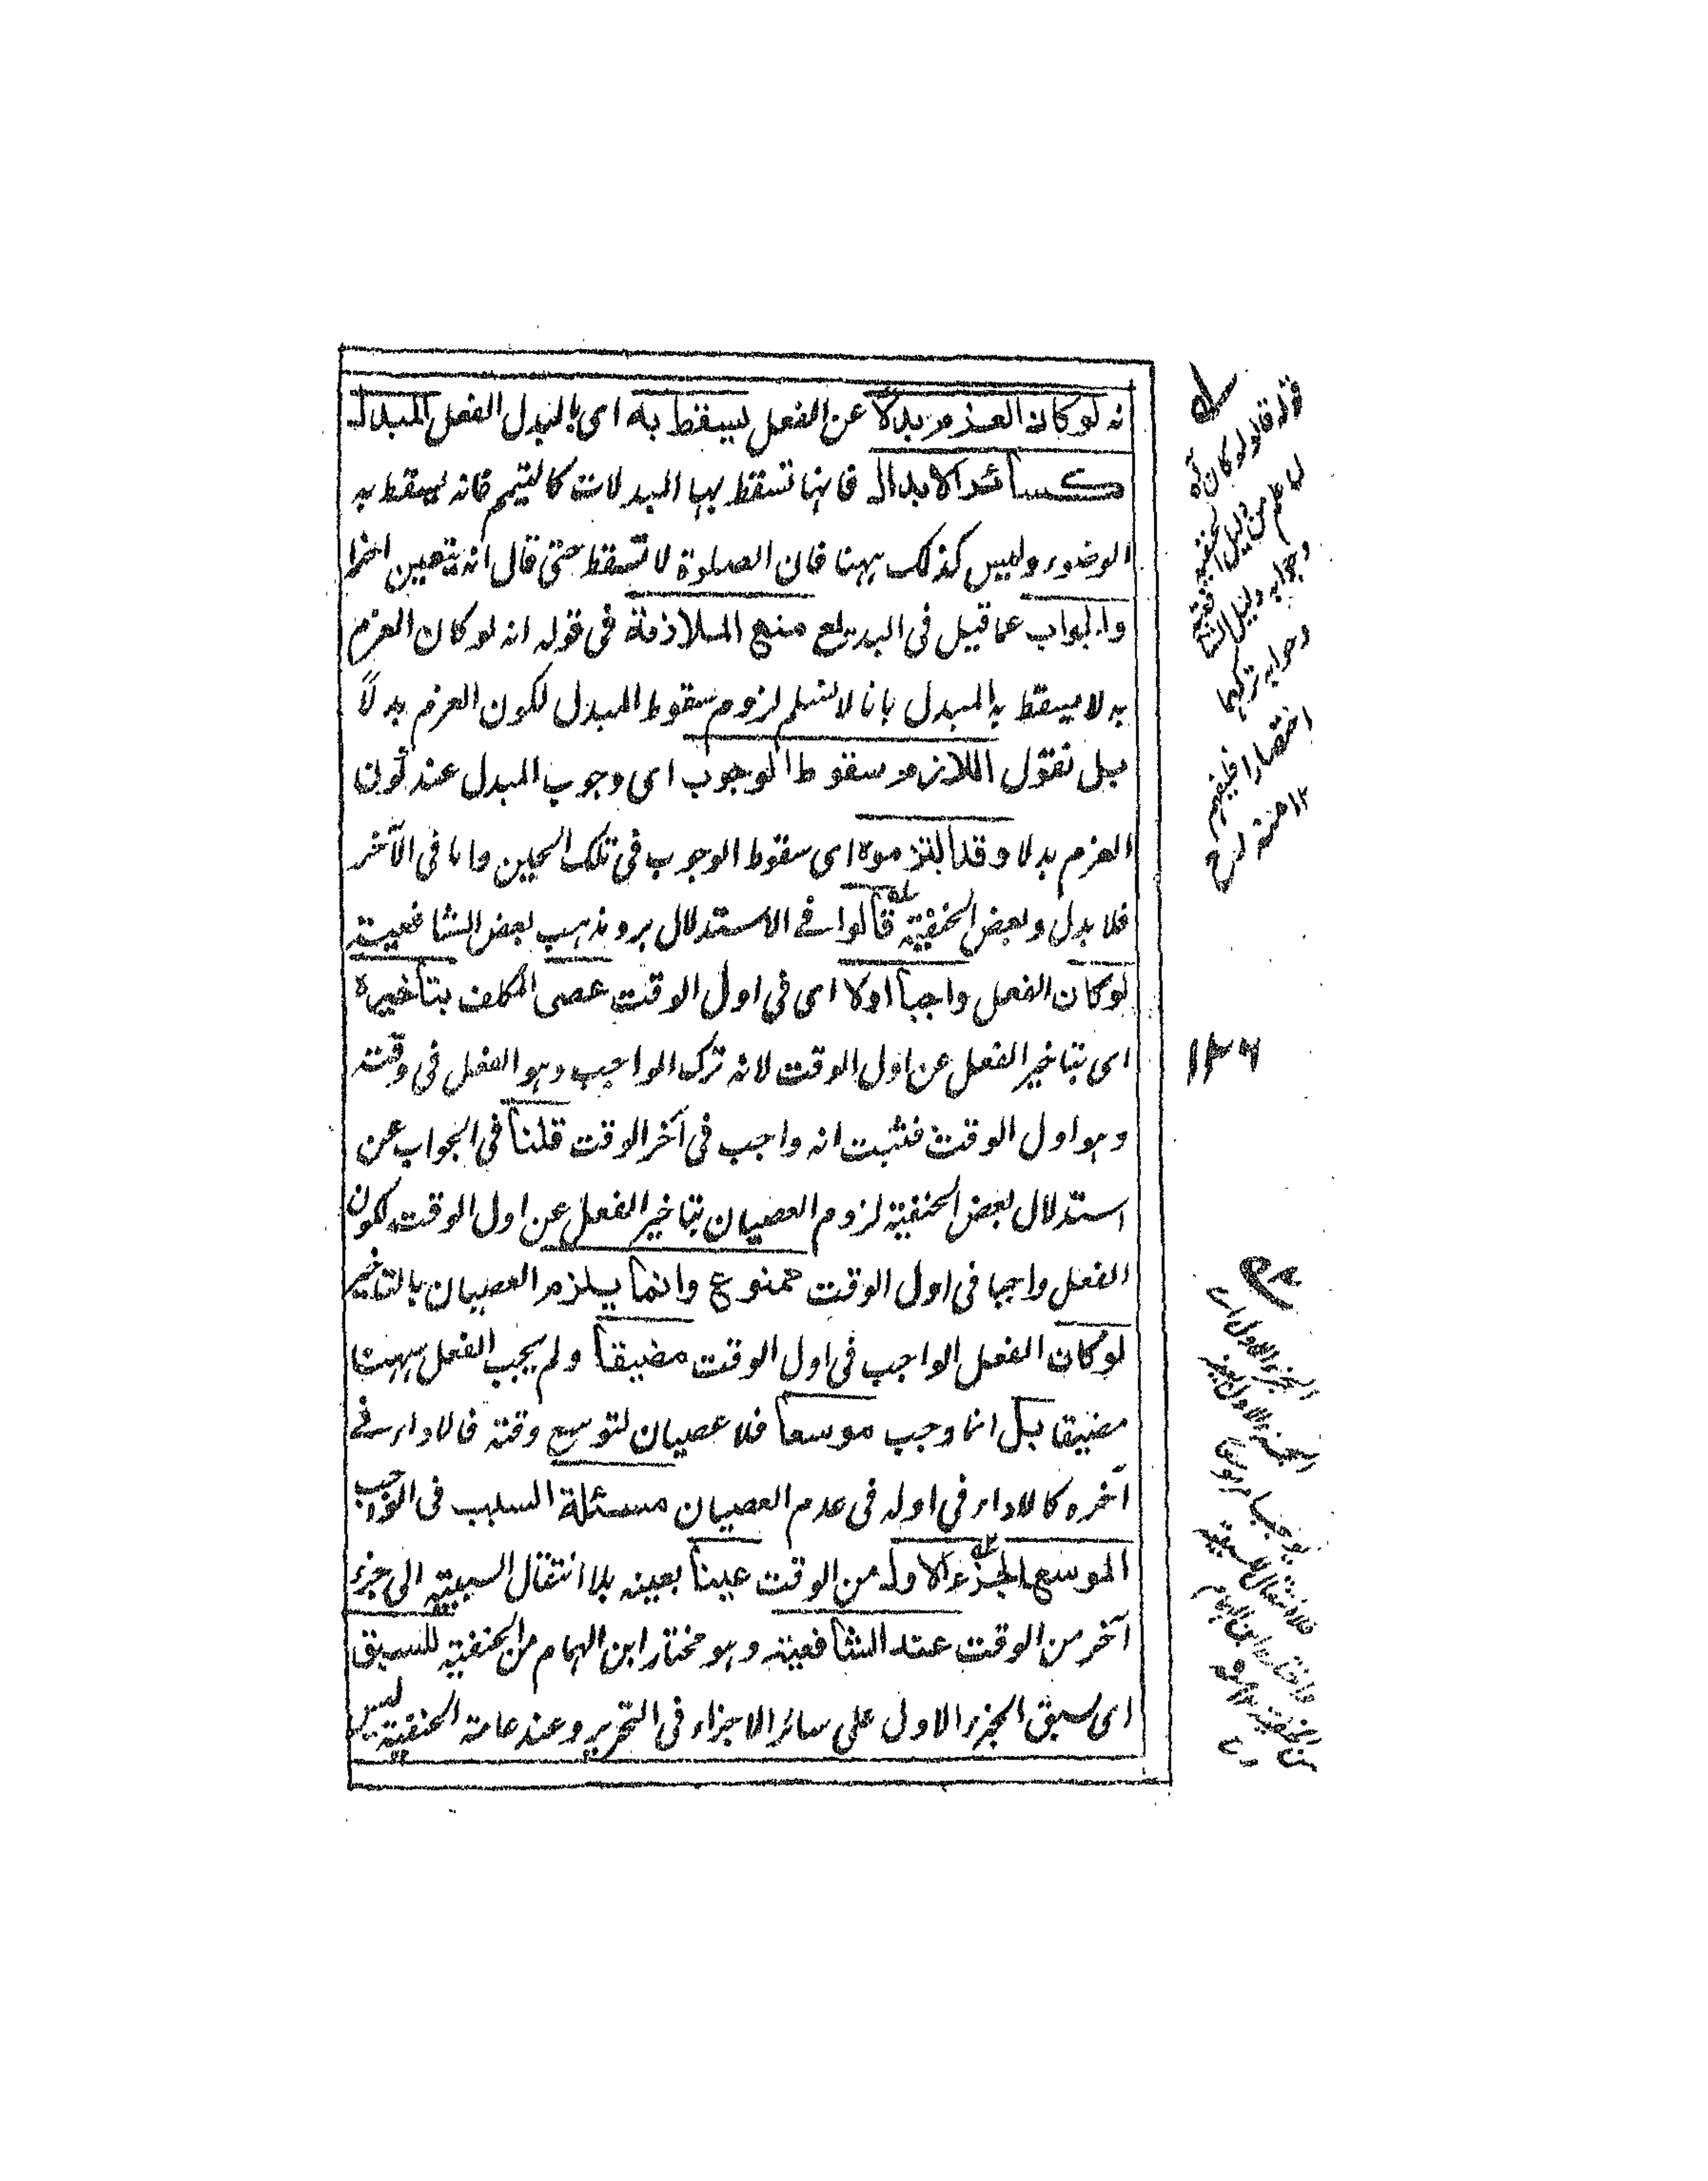 نه لو كان العزم بدلا عن الفعل يسقط به اى بالبدل الفعل المبدل
كسائر الابدال فانها تسقط بها المبدلات كالتيمم فانه يسقط به
الوضوء وليس كذلك ههنا فان الصلوة لا تسقط حتى قال انه يتعين اخرا
والجواب عما قيل فى البديع منع الملازمة فى قوله انه لو كان العزم
به لا يسقط به المبدل بانا لا نسلم لزوم سقوط المبدل لكون العزم بدلاً
بل نقول اللازم سقوط الوجوب اى وجوب المبدل عند كون
العزم بدلا وقد التزموه اى سقوط الوجوب فى تلك الحين واما فى الآخر
فلا بدل وبعض الحنفية قالوا فى الاستدلال برد مذهب بعض الشافعية
لو كان الفعل واجبا اولا اى فى اول الوقت عصى المكلف بتأخيره
اى بتاخير الفعل عن اول الوقت لانه ترك الواجب وهو الفعل فى وقته
وهو اول الوقت فثبت انه واجب فى آخر الوقت قلنا فى الجواب عن
استدلال بعض الحنفية لزوم العصيان بتاخير الفعل عن اول الوقت لكون
الفعل واجبا فى اول الوقت ممنوع وانما يلزم العصيان بالتاخير
لو كان الفعل الواجب فى اول الوقت مضيقا ولم يجب الفعل ههنا
مضيقا بل انما وجب موسعا فلا عصيان لتوسيع وقته فالاداء فى
آخره كالاداء فى اوله فى عدم العصيان مسئلة السبب فى الواجب
الموسع الجزء الاول من الوقت عينا بعينه بلا انتقال السببية الى جزء
آخر من الوقت عند الشافعية وهو مختار ابن الهمام من الحنفية للسبق
اى لسبق الجزء الاول على سائر الاجزاء فى التحرير وعند عامة الحنفية ليس
قوله قالوا لو كان آه
من دليل الحنفية
وجوابه ودليل
وجوابه تركهما
اختصارا فليفهم
١٢ منه
١٣٦